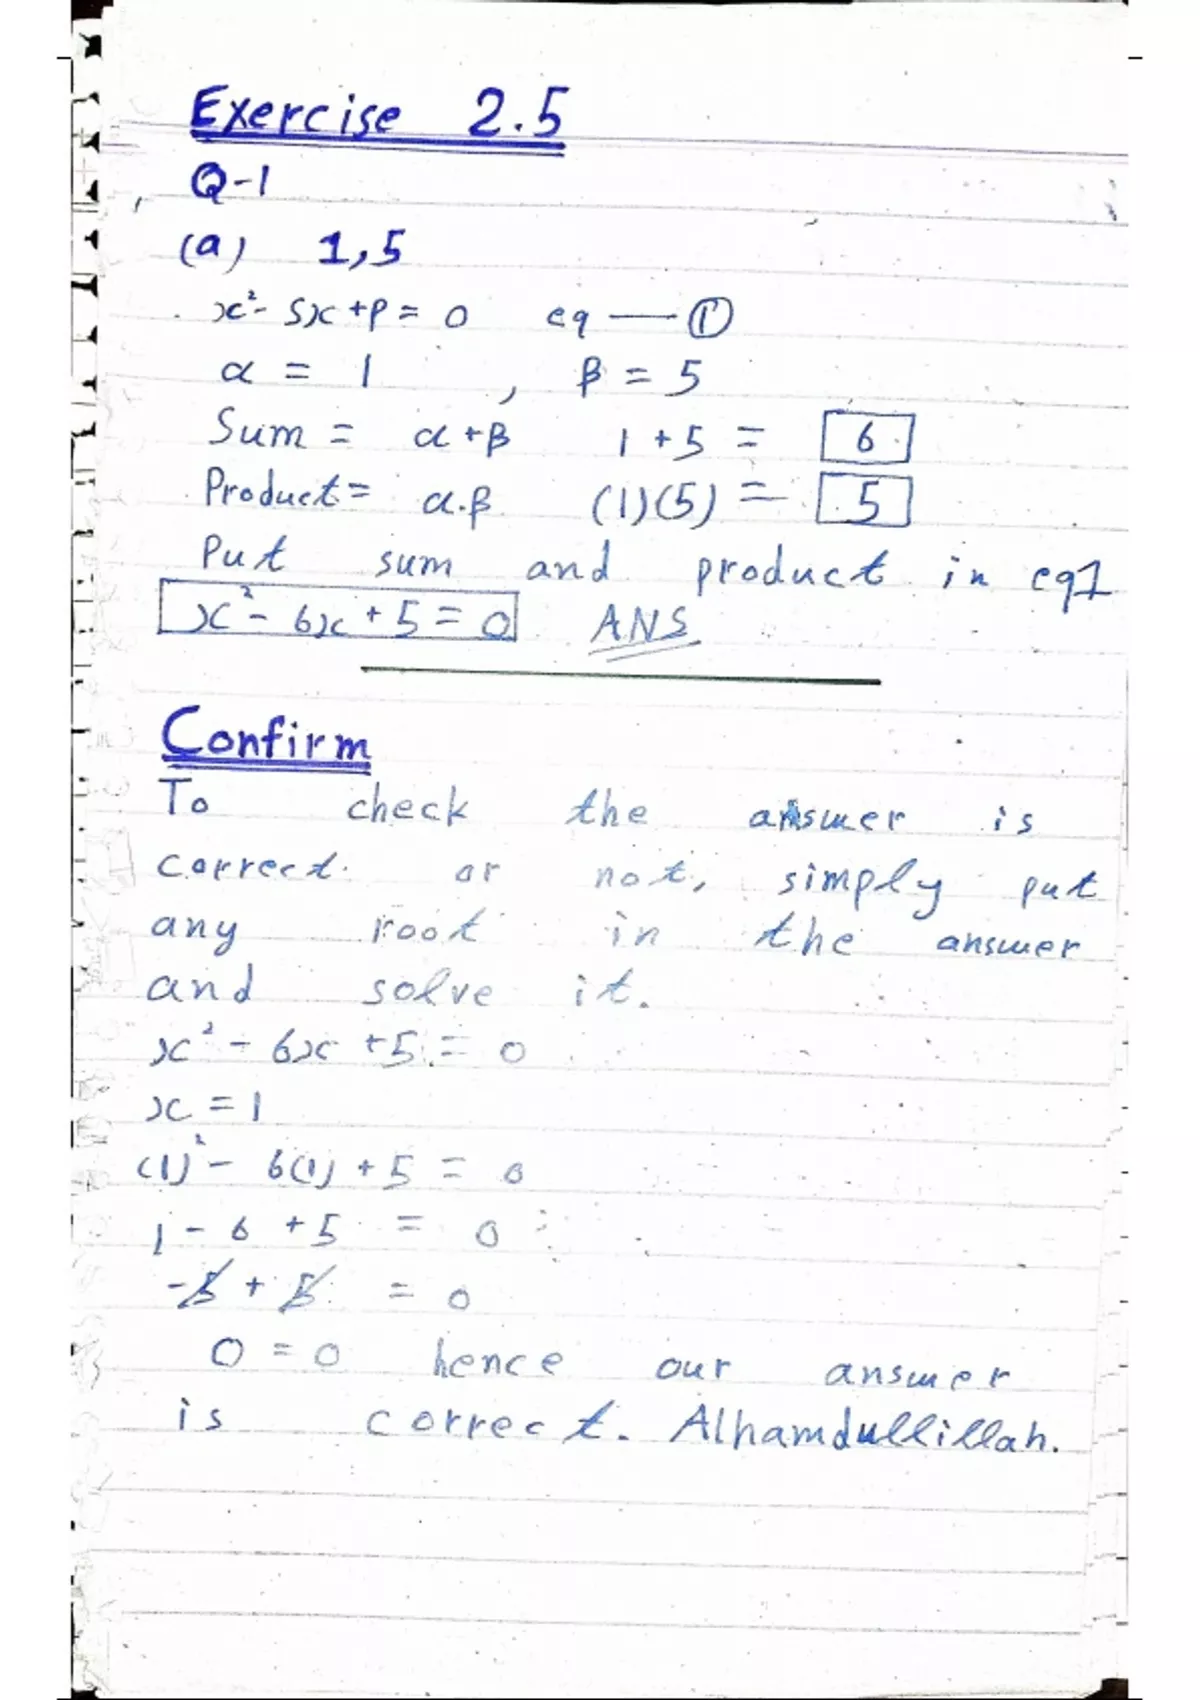 Exercise 2.5
Q-1
(a) 1,5
x² - Sx + P = 0 eq — ①
α = 1 , β = 5
Sum = α+β 1 + 5 = 6
Product = α.β (1)(5) = 5
Put sum and product in eq1
x² - 6x + 5 = 0 ANS
Confirm
To check the answer is
correct or not, simply put
any root in the answer
and solve it.
x² - 6x + 5 = 0
x = 1
(1)² - 6(1) + 5 = 0
1 - 6 + 5 = 0
-5 + 5 = 0
0 = 0 hence our answer
is correct. Alhamdullillah.